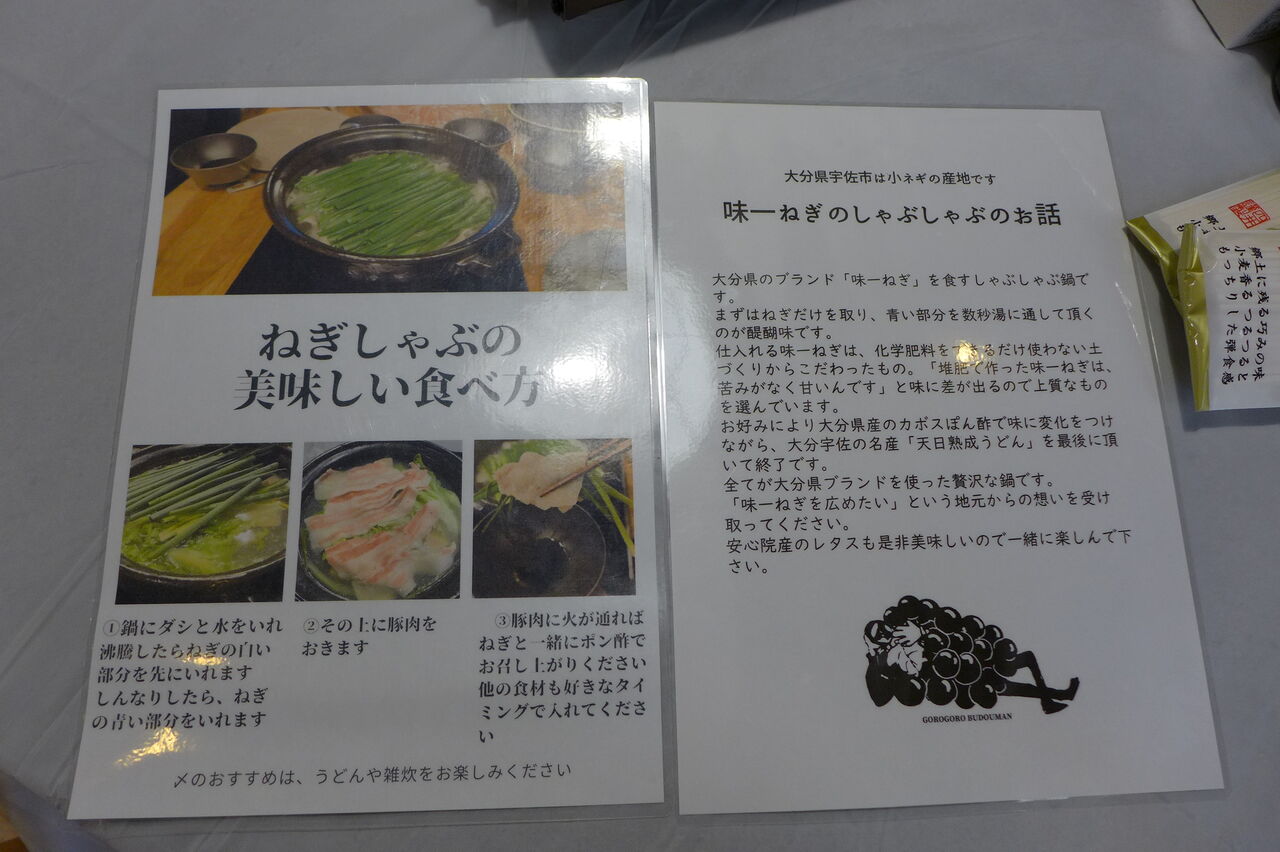 ねぎしゃぶの
美味しい食べ方
①鍋にダシと水をいれ
沸騰したらねぎの白い
部分を先にいれます
しんなりしたら、ねぎ
の青い部分をいれます
②その上に豚肉を
おきます
③豚肉に火が通れば
ねぎと一緒にポン酢で
お召し上がりください
他の食材も好きなタイ
ミングで入れてくださ
い
〆のおすすめは、うどんや雑炊をお楽しみください
大分県宇佐市は小ネギの産地です
味一ねぎのしゃぶしゃぶのお話
大分県のブランド「味一ねぎ」を食すしゃぶしゃぶ鍋で
す。
まずはねぎだけを取り、青い部分を数秒湯に通して頂く
のが醍醐味です。
仕入れる味一ねぎは、化学肥料をできるだけ使わない土
づくりからこだわったもの。「堆肥で作った味一ねぎは、
苦みがなく甘いんです」と味に差が出るので上質なもの
を選んでいます。
お好みにより大分県産のカボスぽん酢で味に変化をつけ
ながら、大分宇佐の名産「天日熟成うどん」を最後に頂
いて終了です。
全てが大分県ブランドを使った贅沢な鍋です。
「味一ねぎを広めたい」という地元からの想いを受け
取ってください。
安心院産のレタスも是非美味しいので一緒に楽しんで下
さい。
GOROGORO BUDOUMAN
郷土に残る巧みの味
小麦香る つるつると
もっちりした弾食感